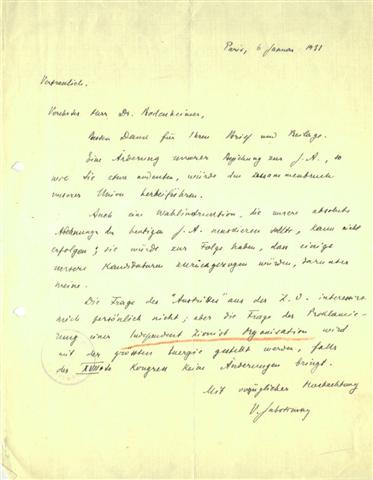 Paris, 6 Januar 1931
Vertraulich.
Verehrter Herr Dr. Bodenheimer,
besten Dank für Ihren Brief und Beilage.
Eine Änderung unserer Beziehung zur J.A., so
wie Sie etwa andeuten, würde den Zusammenbruch
unserer Union herbeiführen.
Auch eine Wahlinstruction, die unsere absolute
Ablehnung der heutigen J.A. neutralisieren sollte, kann nicht
erfolgen; sie würde zur Folge haben, dass einige
unsere Kandidaturen zurückgezogen würden, darunter
meine.
Die Frage des "Austrittes" aus der Z.O. interessiert
mich persönlich nicht; aber die Frage der Proklamie-
rung einer Independent Zionist Organisation wird
mit der grössten Energie gestellt werden, falls
der XVII te Kongress keine Änderungen bringt.
Mit vorzüglicher Hochachtung
V. Jabotinsky